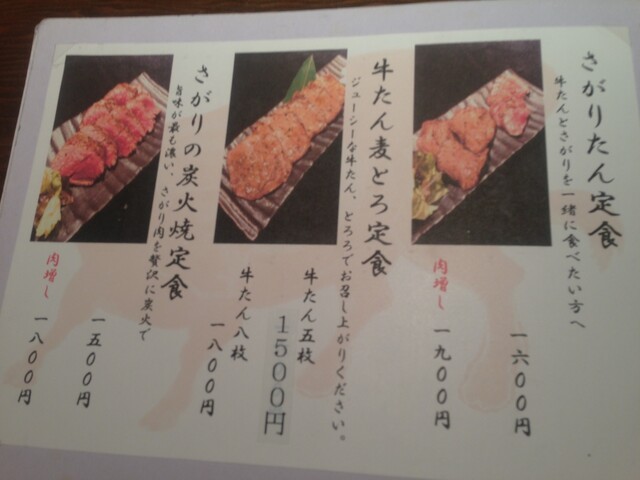 さがりたん定食
牛たんとさがりを一緒に食べたい方へ
一六〇〇円
肉増し 一九〇〇円
牛たん麦とろ定食
ジューシーな牛たん、とろろでお召し上がりください。
牛たん五枚
1500円
牛たん八枚
一八〇〇円
さがりの炭火焼定食
旨味が最も濃い、さがり肉を贅沢に炭火で
一五〇〇円
肉増し 一八〇〇円